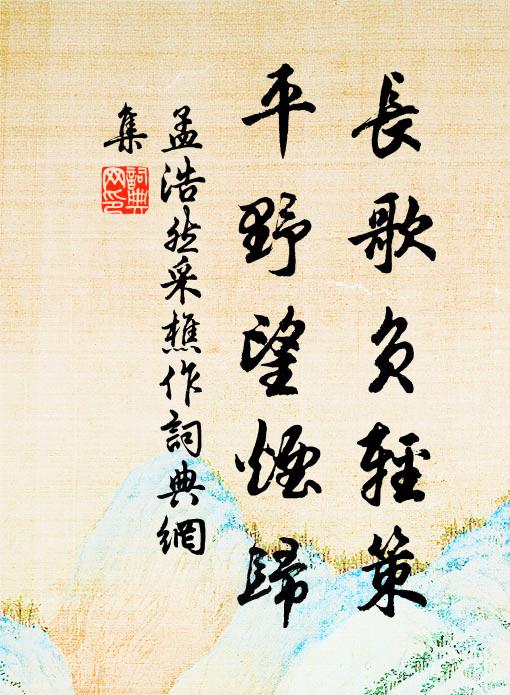 長歌負輕策
平野望煙歸
孟浩然采樵作詞典網
集
詞典
网印